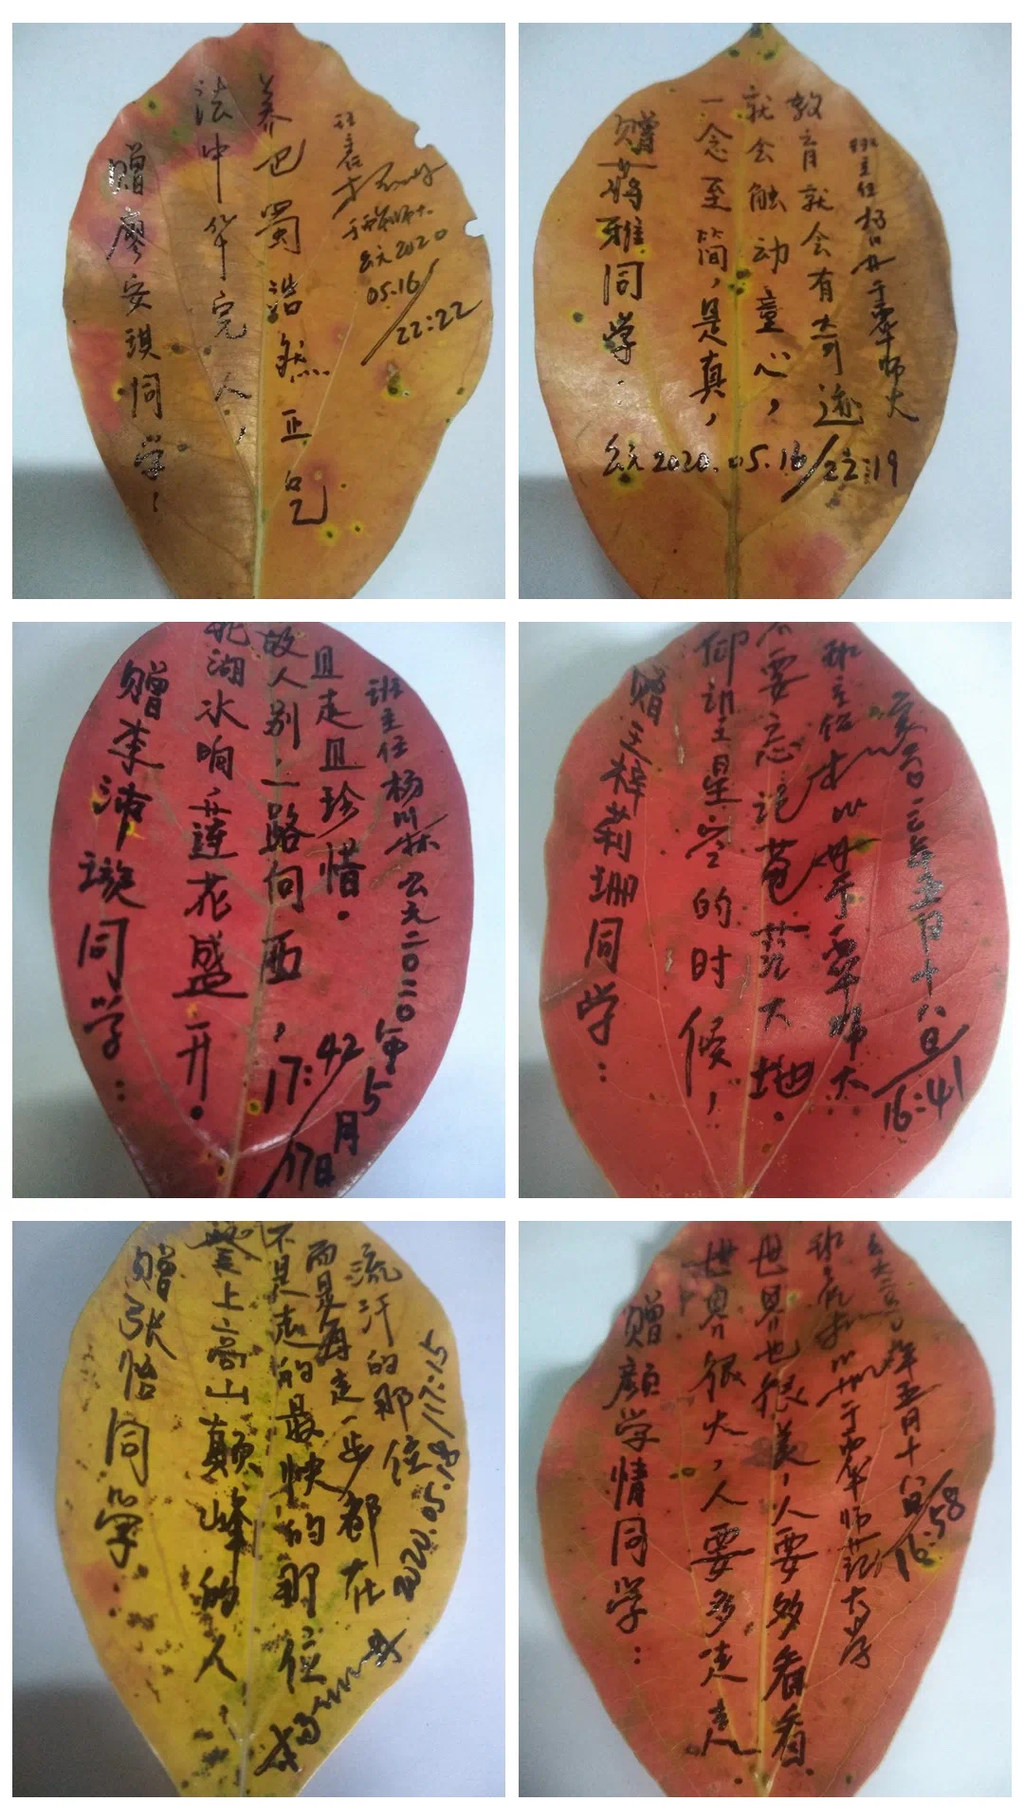 赠廖安琪同学：
法中华完人，
养巴蜀浩然正气
班主任
公元2020
05.16
22:22
赠蒋雅同学：
一念至简，是真，
就会触动童心，
教育就会有奇迹
班主任杨川于翠师大
公元2020.05.16/22:19
赠李沛璇同学：
北湖水响莲花盛开。
故人别一路向西，
且走且珍惜。
班主任杨川林公元二〇二〇年5月17日
17:42
赠王梓莉珊同学：
仰望星空的时候，
不要忘记苍茫大地。
班主任
二〇二〇年五月十八日
16:41
赠张悟同学：
登上高山颠峰的人，
不是走的最快的那位
而是每走一步都在
流汗的那位
2020.05.18/17:15
赠颜学情同学：
世界很大，人要多走走
世界也很美，人要多看看
年五月十八日
16:58